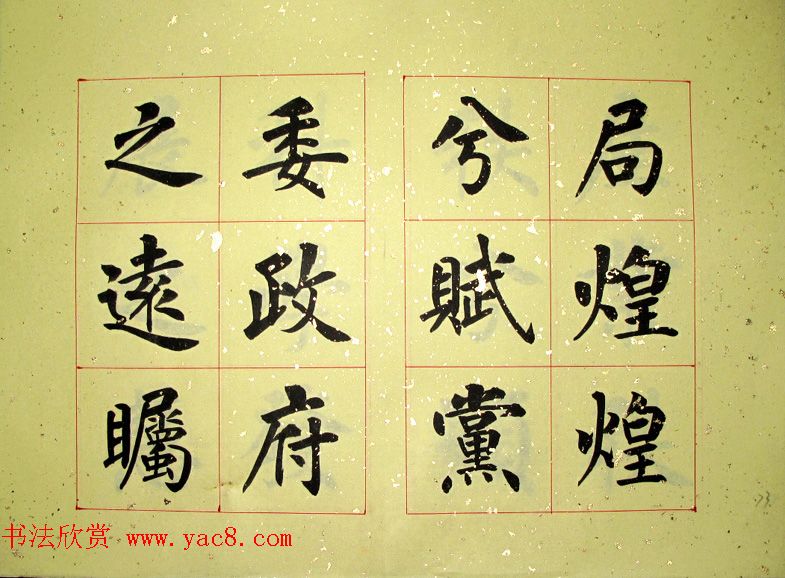 局煌煌
兮賦黨
委政府
之遠矚
书法欣赏 www.yac8.com